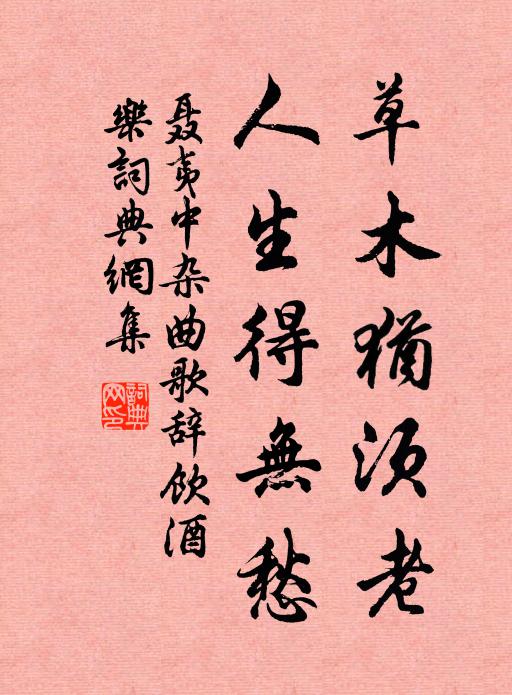 草木猶須老
人生得無愁
聂夷中杂曲歌辞飲酒
樂詞典網集
詞典
网印